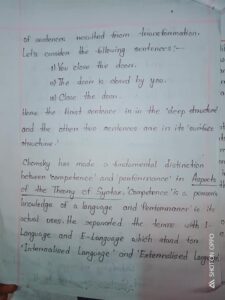 of sentences resulted from transformation.
Let's consider the following sentences:-
a) You close the door.
b) The door is closed by you.
c) Close the door.
Here the first sentence is in the 'deep structure'
and the other two sentences are in its 'surface
structure.'
Chomsky has made a fundamental distinction
between 'competence' and 'performance' in Aspects
of the Theory of Syntax. 'Competence' is a person's
knowledge of a language and 'Performance' is its
actual uses. He separated the terms with I-
Language and E-Language which stand for
'Internalised Language' and 'Externalised Language
SHOT ON OPPO